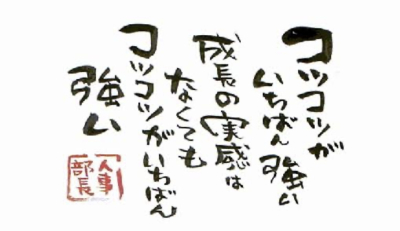 コツコツが
いちばん強い
成長の実感は
なくても
コツコツがいちばん
強い
人事
部長